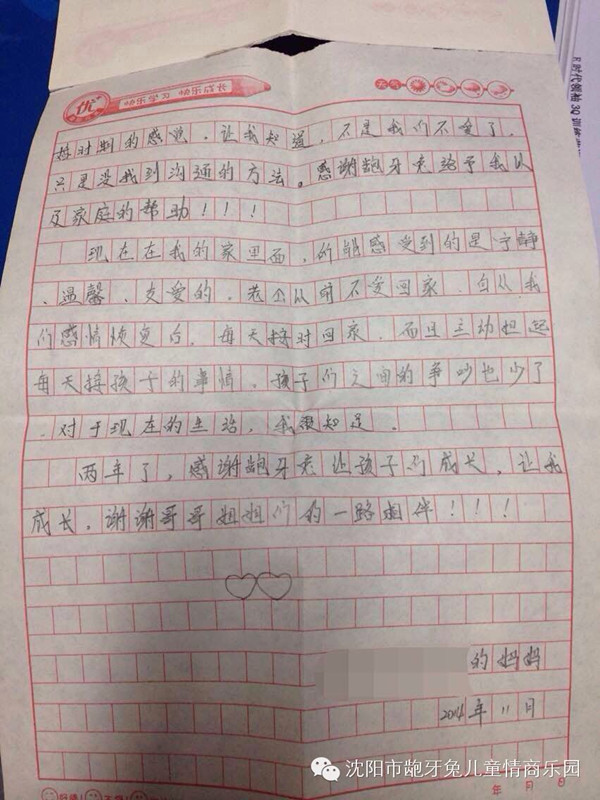 优
快乐学习 快乐成长
天气
的感觉，让我知道，不是我们不爱了，
只是没找到沟通的方法。感谢龅牙兔给予我以
及家庭的帮助！！！
现在在我的家里面，的能感受到的是宁静
、温馨、友爱的。老公从前不爱回家，自从我
们感情恢复后，每天按时回家，而且主动担起
每天接孩子的事情。孩子们之间的争吵也少了
，对于现在的生活，我很知足。
两年了，感谢龅牙兔让孩子们成长，让我
成长。谢谢哥哥姐姐们的一路相伴！！！
的妈妈
2014年11日
年 月 日
沈阳市龅牙兔儿童情商乐园